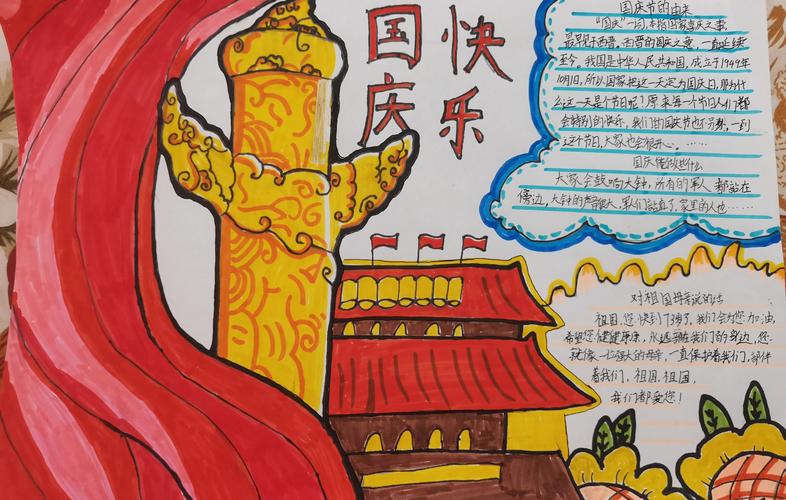 国庆
快乐
国庆节的由来
"国庆"一词,本指国家喜庆之事,
最早见于西晋,西晋的国庆之意,一直延续
至今。我国是中华人民共和国,成立于1949年
10月1日,所以国家把这一天定为国庆日,那为什
么这一天是个节日呢?原来每一个节日人们都
会特别的快乐,我们的国庆节也不另外,一到
这个节日,大家也会很开心。……
国庆能做些什么
大家会鼓响大钟,所有的军人都站在
傍边,大钟的声音很大,军人们站直了,家里的人也……
对祖国母亲说的话
祖国,您快到73岁了,我们会为您加油,
希望您健健康康,永远在我们的身边,您
就像一位强大的母亲,一直保护着我们,陪伴
着我们,祖国,祖国,
我们都爱您!